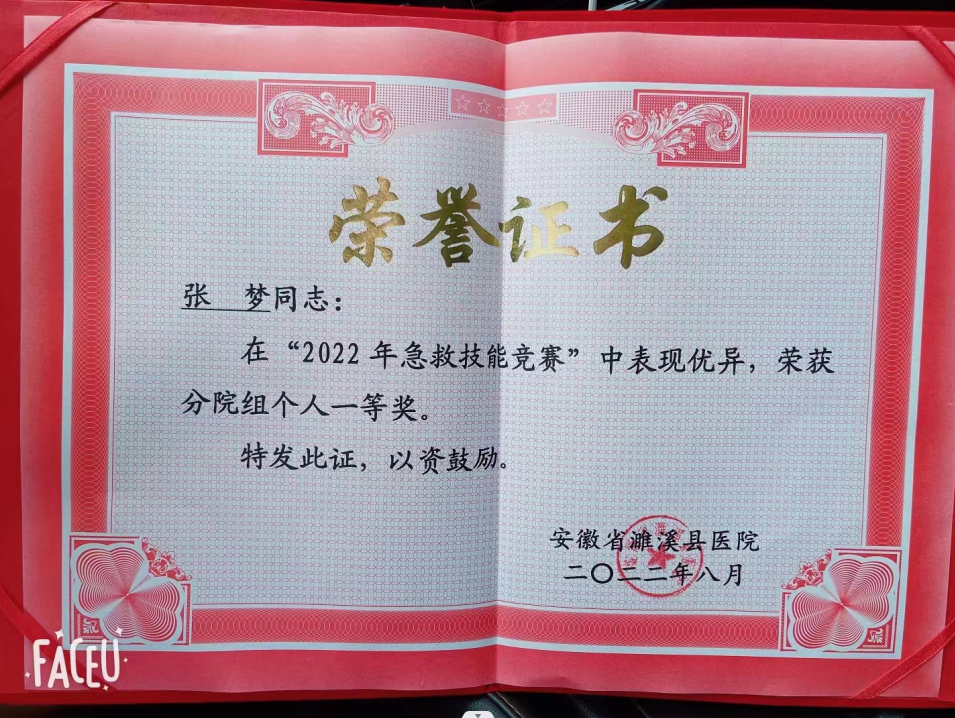 荣誉证书
张 梦同志：
在“2022年急救技能竞赛”中表现优异，荣获
分院组个人一等奖。
特发此证，以资鼓励。
安徽省濉溪县医院
二〇二二年八月
FACEU